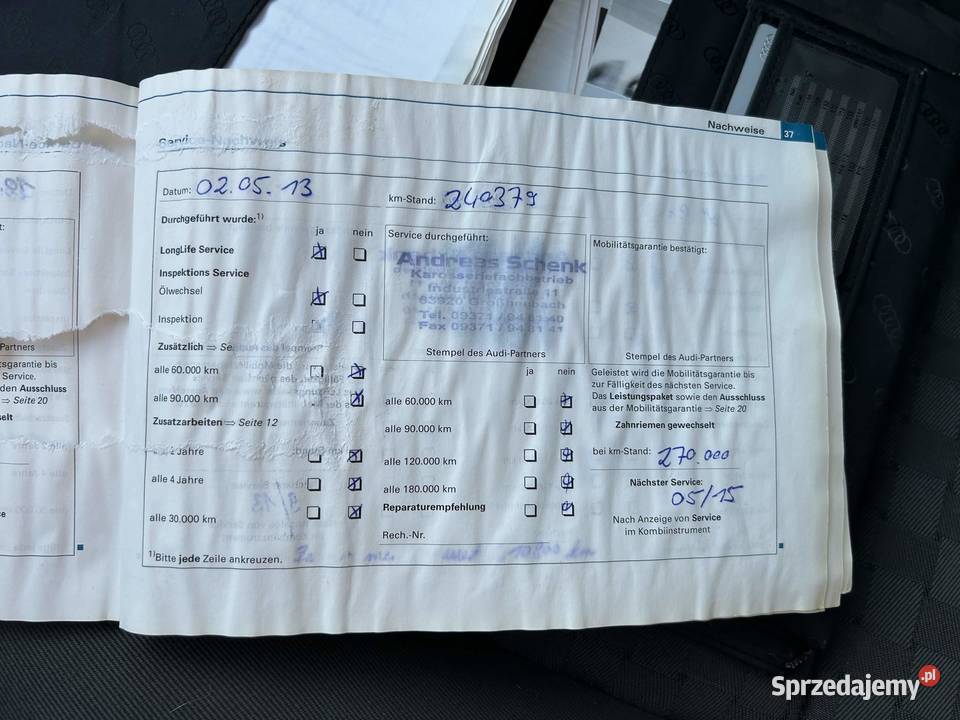 Nachweise 37
Service-Nachweis
Datum: 02.05.13
km-Stand: 240379
Durchgeführt wurde:1)
ja nein
LongLife Service
Inspektions Service
Ölwechsel
Inspektion
Zusätzlich ⇒ Se
alle 60.000 km
alle 90.000 km
Zusatzarbeiten ⇒ Seite 12
2 Jahre
alle 4 Jahre
alle 30.000 km
Service durchgeführt:
Andreas Schenk
Karosseriefachbetrieb
Industriestraße 11
63920 Großheubach
Tel. 09371 / 94 81 40
Fax 09371 / 94 81 41
Stempel des Audi-Partners
ja nein
alle 60.000 km
alle 90.000 km
alle 120.000 km
alle 180.000 km
Reparaturempfehlung
Rech.-Nr.
Mobilitätsgarantie bestätigt:
Stempel des Audi-Partners
Geleistet wird die Mobilitätsgarantie bis
zur Fälligkeit des nächsten Service.
Das Leistungspaket sowie den Ausschluss
aus der Mobilitätsgarantie ⇒ Seite 20
Zahnriemen gewechselt
bei km-Stand: 270.000
Nächster Service:
05/15
Nach Anzeige von Service
im Kombiinstrument
1)Bitte jede Zeile ankreuzen.
Partners
tsgarantie bis
Service.
den Ausschluss
⇒ Seite 20
selt
Sprzedajemy.pl